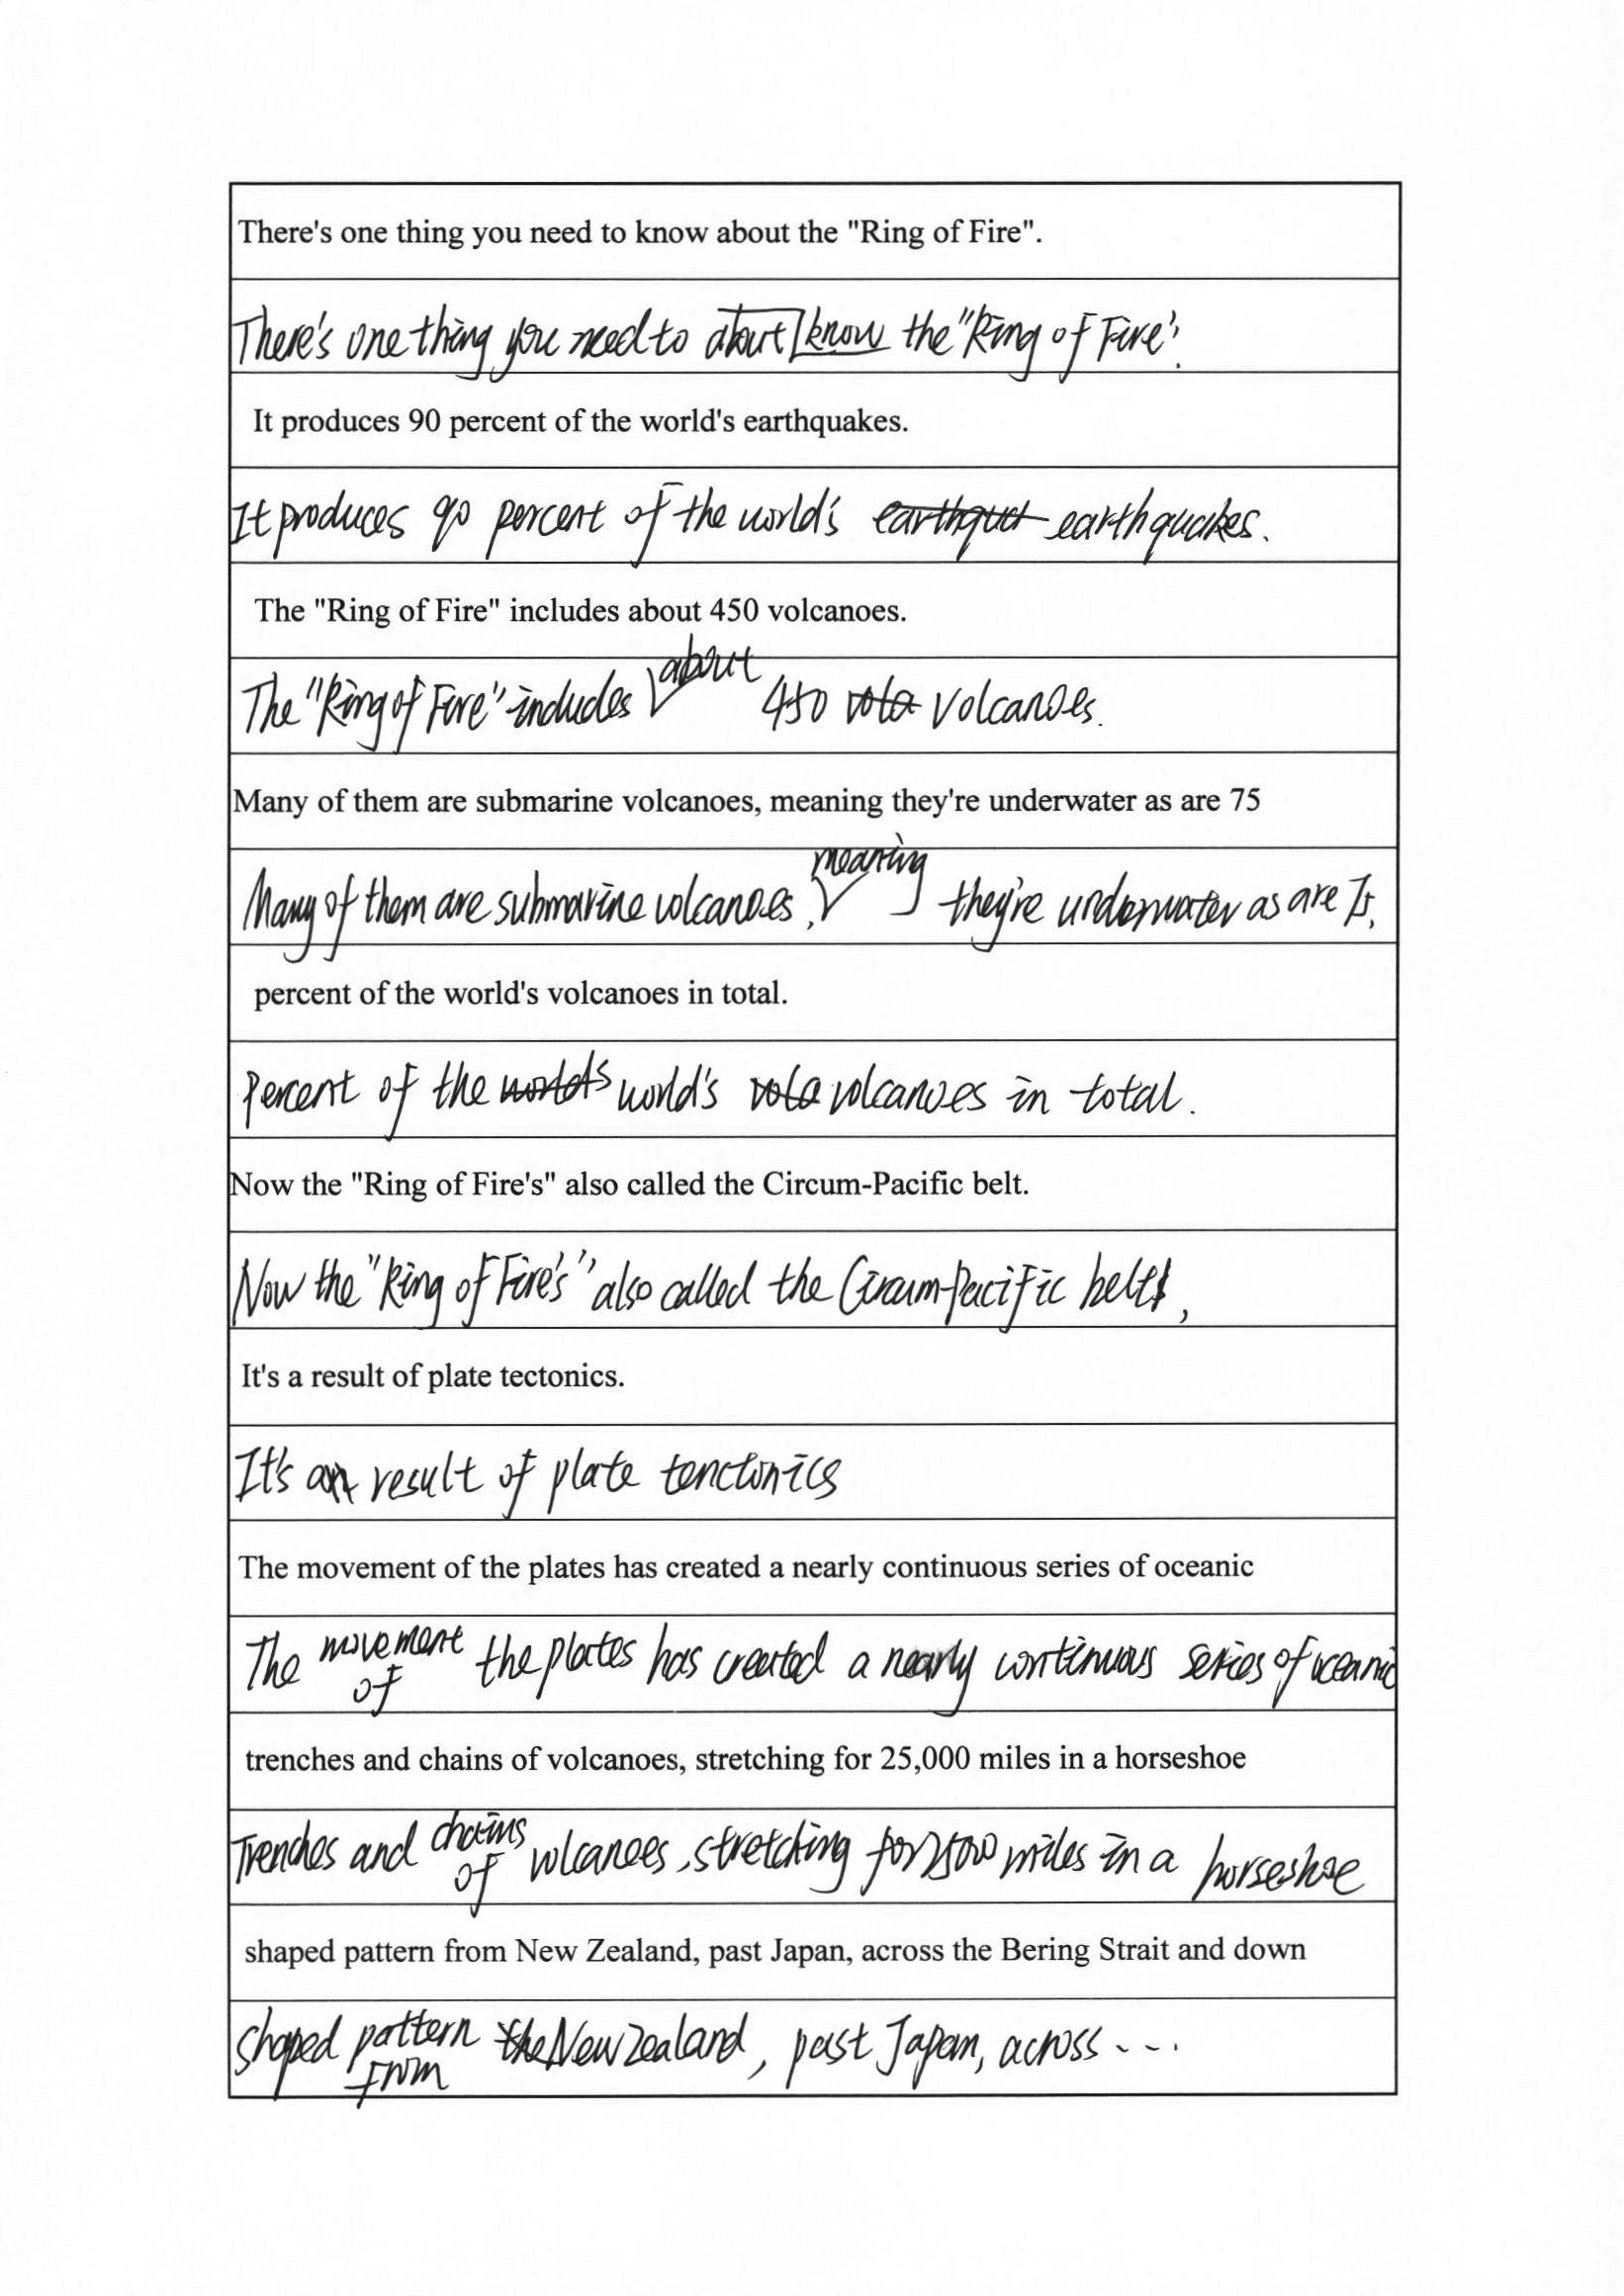 There's one thing you need to know about the "Ring of Fire".
There's one thing you need to about know the "Ring of Fire".
It produces 90 percent of the world's earthquakes.
It produces 90 percent of the world's earthquakes.
The "Ring of Fire" includes about 450 volcanoes.
The "Ring of Fire" includes about 450 volcanoes.
Many of them are submarine volcanoes, meaning they're underwater as are 75
Many of them are submarine volcanoes, meaning they're underwater as are 75,
percent of the world's volcanoes in total.
Percent of the world's volcanoes in total.
Now the "Ring of Fire's" also called the Circum-Pacific belt.
Now the "Ring of Fire's" also called the Circum-Pacific belt,
It's a result of plate tectonics.
It's a result of plate tenctonics
The movement of the plates has created a nearly continuous series of oceanic
The movement of the plates has created a nearly continuous series of oceanic
trenches and chains of volcanoes, stretching for 25,000 miles in a horseshoe
Trenches and chains of volcanoes, stretching for 2500 miles in a horseshoe
shaped pattern from New Zealand, past Japan, across the Bering Strait and down
Shaped pattern from New Zealand, past Japan, across ---.